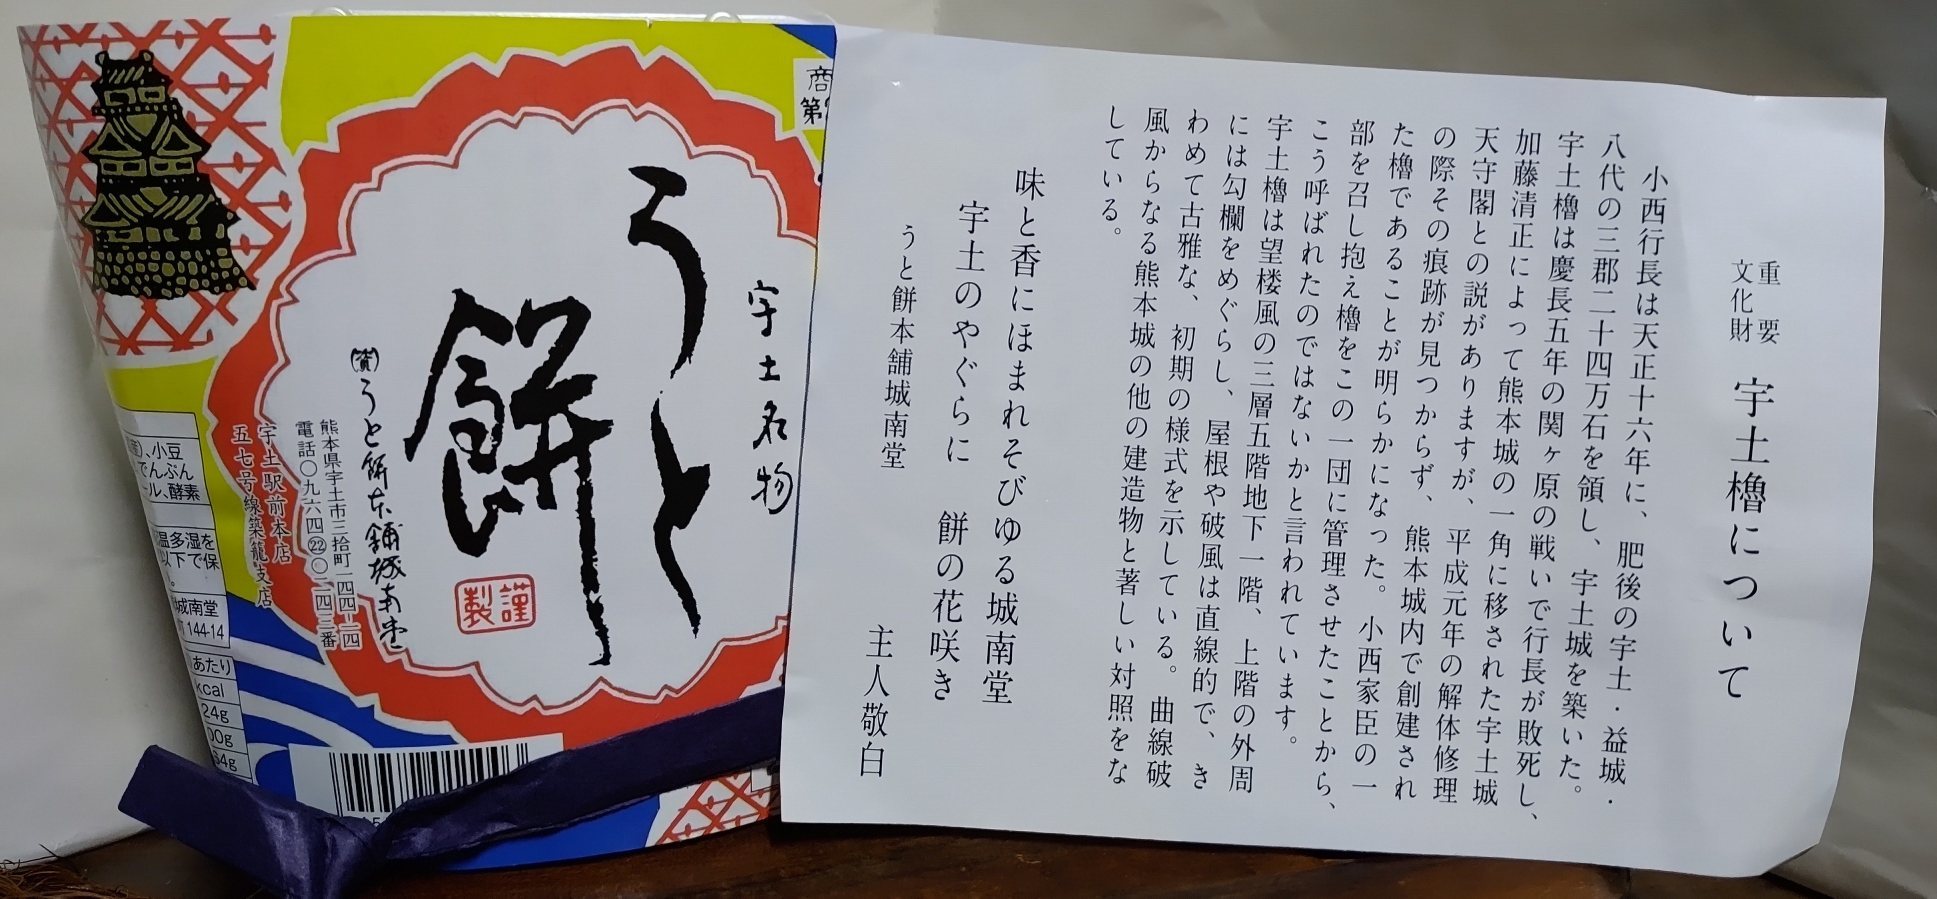 重要
文化財
宇土櫓について
小西行長は天正十六年に、肥後の宇土・益城・
八代の三郡二十四万石を領し、宇土城を築いた。
宇土櫓は慶長五年の関ヶ原の戦いで行長が敗死し、
加藤清正によって熊本城の一角に移された宇土城
天守閣との説がありますが、平成元年の解体修理
の際その痕跡が見つからず、熊本城内で創建され
た櫓であることが明らかになった。小西家臣の一
部を召し抱え櫓をこの一団に管理させたことから、
こう呼ばれたのではないかと言われています。
宇土櫓は望楼風の三層五階地下一階、上階の外周
には勾欄をめぐらし、屋根や破風は直線的で、き
わめて古雅な、初期の様式を示している。曲線破
風からなる熊本城の他の建造物と著しい対照をな
している。
味と香にほまれそびゆる城南堂
宇土のやぐらに 餅の花咲き
うと餅本舗城南堂
主人敬白
商
第
宇土名物
うと
餅
謹製
㈾うと餅本舗城南堂
熊本県宇土市三拾町一四四-一四
電話〇九六四㉒〇二四三番
宇土駅前本店
五七号線築籠支店
、小豆
でんぷん
ール、酵素
温多湿を
以下で保
城南堂
144-14
あたり
kcal
24g
00g
34g